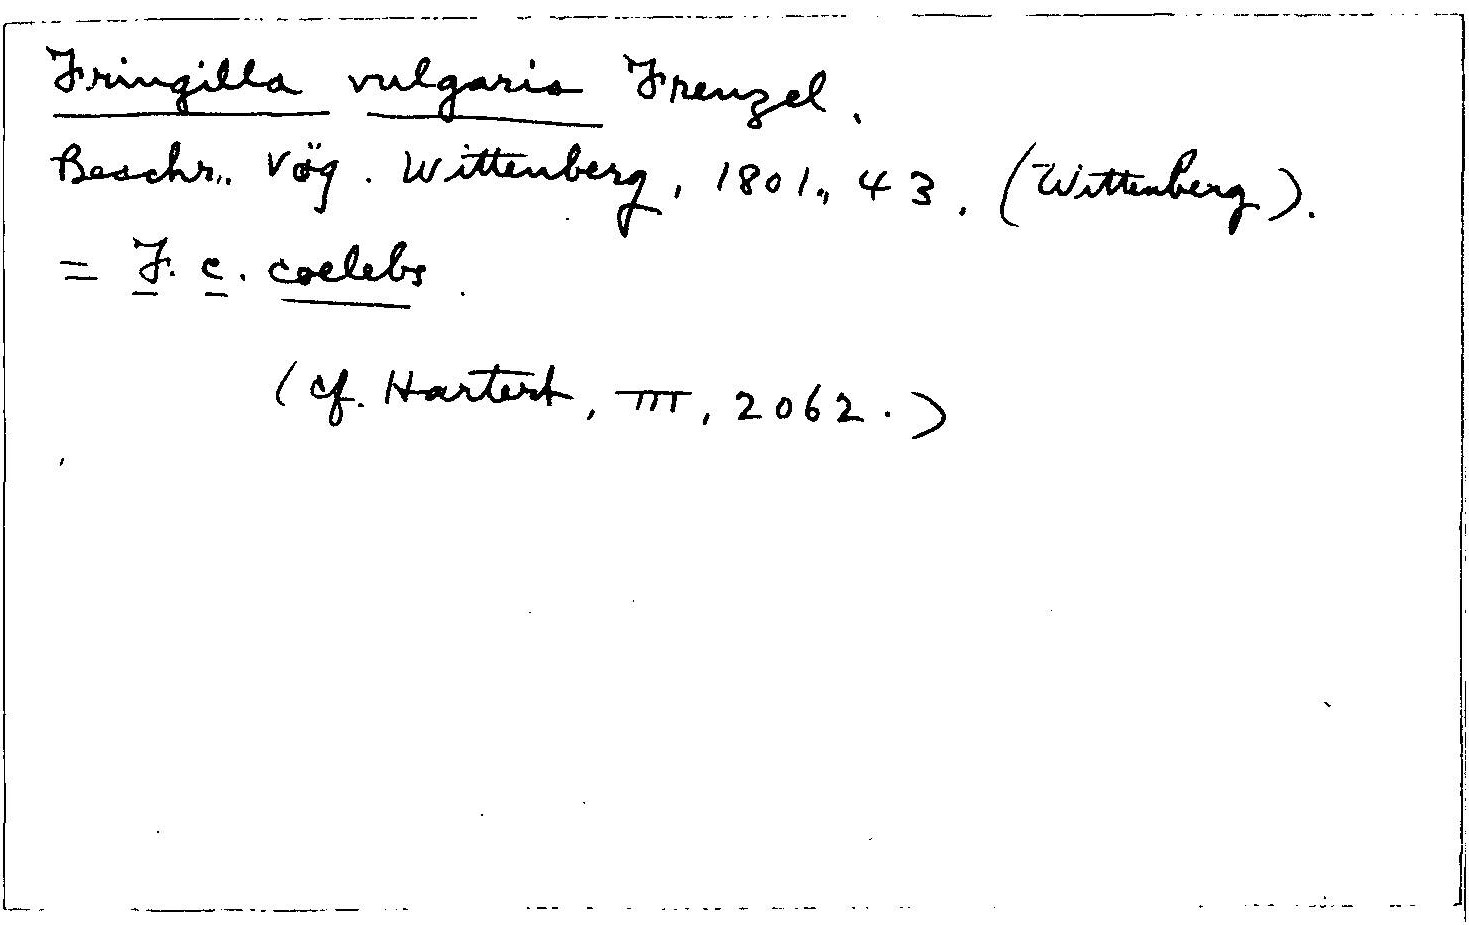 Fringilla vulgaris Frenzel.
Beschr. Vög. Wittenberg, 1801, 43. (Wittenberg).
= F. c. coelebs.
(cf. Hartert, III, 2062.)